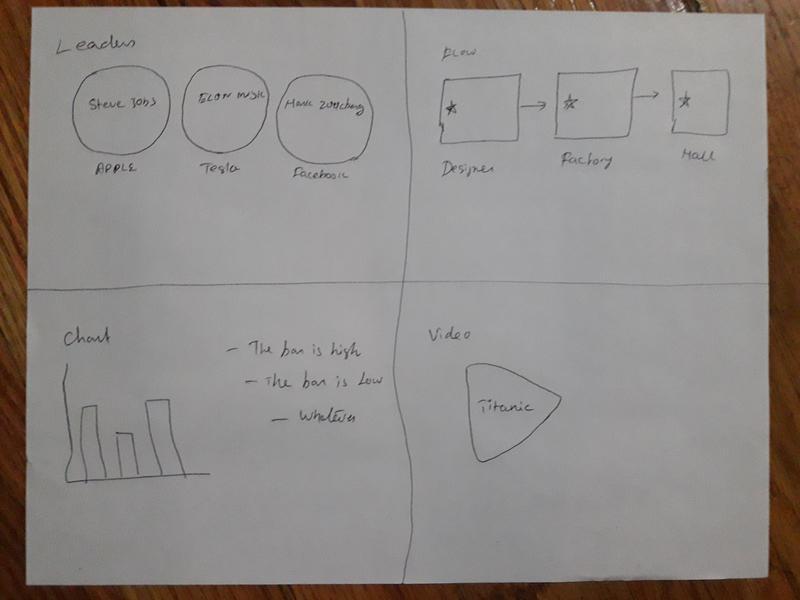 Leaders
Steve Jobs
ELON MUSK
Mark Zuckberg
APPLE
Tesla
Facebook
Flow
Designer
Factory
Mall
Chart
- The bar is high
- The bar is Low
- Whatever
Video
Titanic